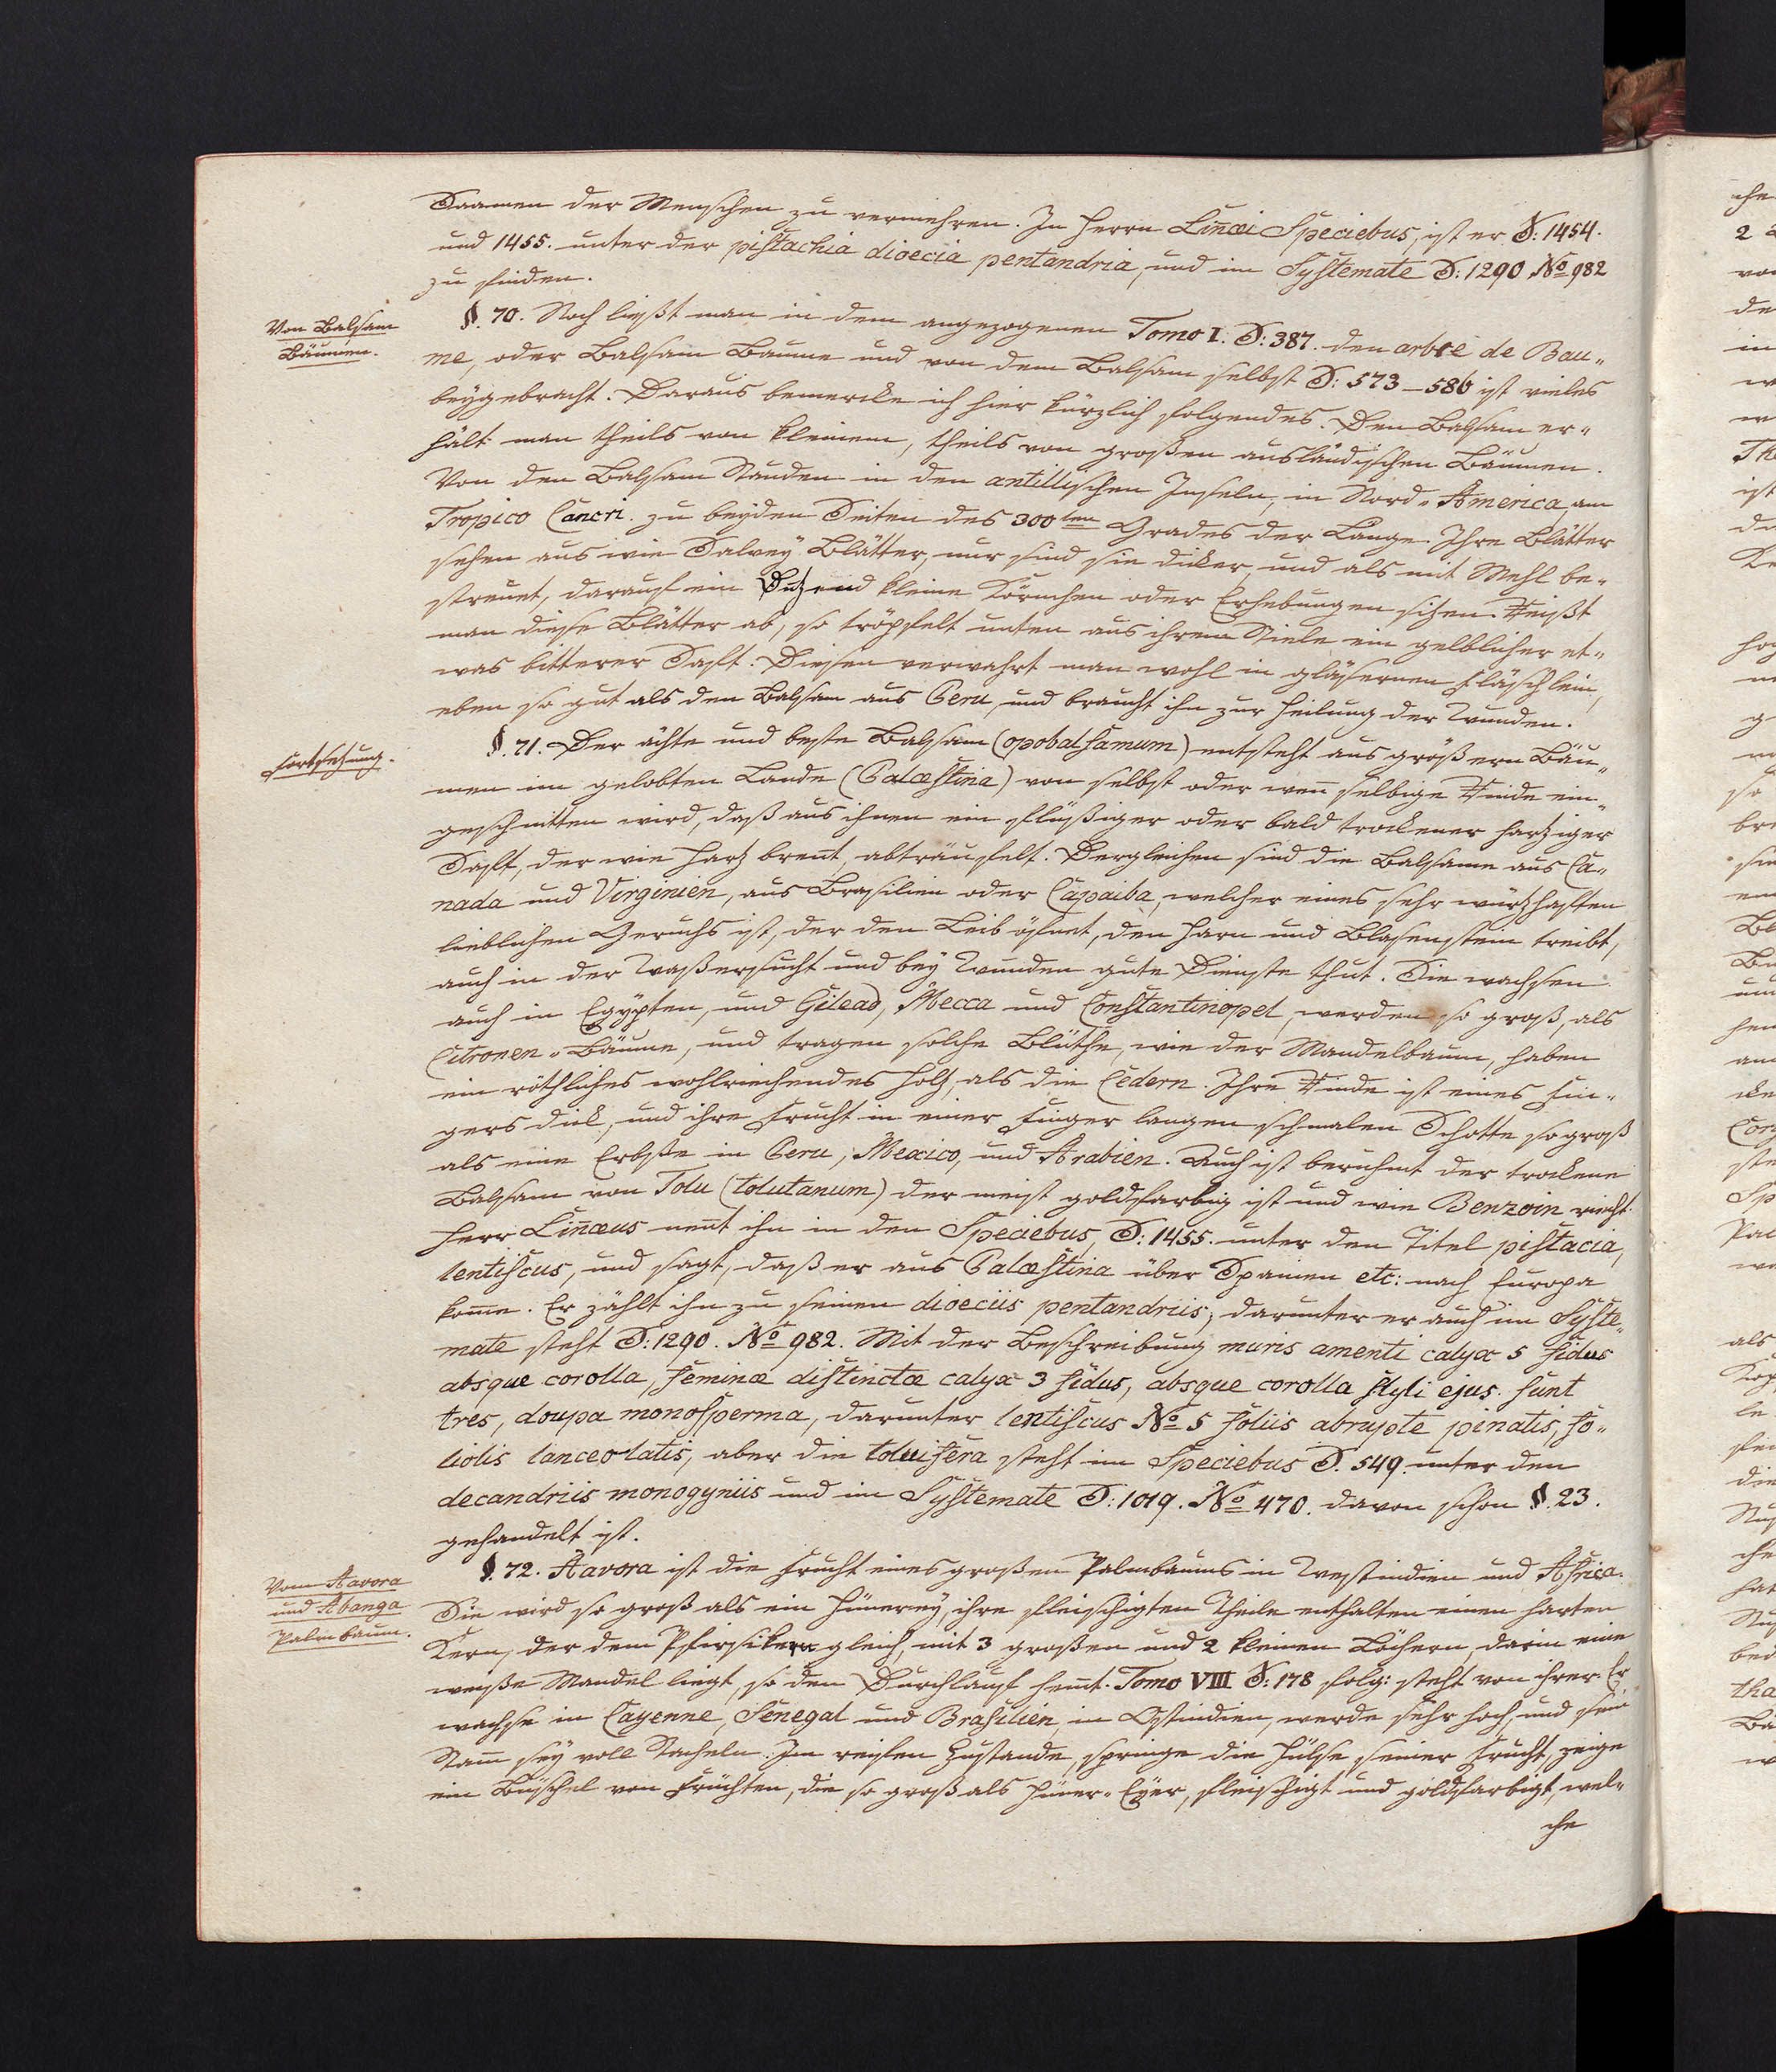 Saamen der Menschen zu vermehren. In Herrn Linnæi Speciebus, ist er S: 1454.
und 1455. unter der pistachia dioecia pentandria, und im Systemate S: 1290 No 982
zu finden.
Von Balsam
Bäumen.
§. 70. Noch ließt man in dem angezogenen Tomo I. S: 387. den arbre de Bau-
me, oder Balsam Baume und von dem Balsam selbst S: 573-586 ist vieles
beygebracht. Daraus bemercke ich hier kürzlich folgendes. Den Balsam er-
hält man theils von kleinem, theils von großen ausländischen Bäumen.
Von den Balsam Stauden in den antillischen Inseln, in Nord-America, am
Tropico Cancri. zu beyden Seiten des 300ten Grades der Länge. Ihre Blätter
sehen aus wie Salvey Blätter, nur sind sie dicker, und als mit Mehl be-
streuet, darauf ein Dutzend kleine Körnchen oder Erhebungen sitzen. Reißt
man diese Blätter ab, so tröpfelt unten aus ihrem Stiele ein gelblicher et-
was bitterer Saft. Diesen verwahrt man wohl in gläsernen Fläschlein,
eben so gut als den Balsam aus Peru, und braucht ihn zur Heilung der Wunden.
Fortsetzung.
§. 71. Der ächte und beste Balsam (opobalsamum) entsteht aus größern Bäu-
men im gelobten Lande (Palæstina) von selbst oder wenn selbige Rinde ein-
geschnitten wird, daß aus ihnen ein flüßiger oder bald trockener hartziger
Saft, der wie Hartz brennt, abträufelt. Dergleichen sind die Balsame aus Ca-
nada und Virginien, aus Brasilien oder Capaiba, welcher eines sehr würtzhaften
lieblichen Geruchs ist, der den Leib öfnet, den Harn und Blasenstein treibt,
auch in der Waßersucht und bey Wunden gute Dienste thut. Sie wachsen
auch in Egypten, und Gilead, Mecca und Constantinopel, werden so groß, als
Citronen-Bäume, und tragen solche Blüthe, wie der Mandelbaum, haben
ein röthliches wohlriechendes Holtz, als die Cedern. Ihre Rinde ist eines Fin-
gers dick, und ihre Frucht in einer Finger langen schmalen Schotte so groß
als eine Erbse in Peru, Mexico, und Arabien. Auch ist berühmt der trockene
Balsam von Tolu (tolutanum) der meist goldfarbig ist und wie Benzoin riecht.
Herr Linnæus nennt ihn in den Speciebus, S: 1455. unter den Titel pistacia,
lentiscus, und sagt, daß er aus Palæstina über Spanien etc: nach Europa
komme. Er zählt ihn zu seinen dioeciis pentandriis, darunter er auch im Syste-
mate steht S: 1290. No 982. Mit der Beschreibung maris amenti calyx 5 fidus
absque corolla, feminæ distinctæ calyx 3 fidus, absque corolla styli ejus sunt
tres, doupa monosperma, darunter lentiscus No 5 foliis abrupte pinatis, fo-
liolis lanceolatis, aber die toluifera steht im Speciebus S. 549. unter den
decandriis monogyniis und im Systemate S: 1019. No 470. davon schon §. 23.
gehandelt ist.
Vom Aavora
und Abanga
Palmbaum.
§. 72. Aavora ist die Frucht eines großen Palmbaums in Westindien und Africa.
Sie wird so groß als ein Hünerey, ihre fleischigten Theile enthalten einen harten
Kern, der dem Pfirsikern gleich, mit 3 großen und 2 kleinen Löchern, darin eine
weiße Mandel liegt, so den Durchlauf hemmt. Tomo VIII S: 178 folg: steht von ihrer: Er
wachse in Cayenne, Senegal und Brasilien, in Ostindien, werde sehr hoch, und sein
Stamm sey voll Stacheln. Im reifen Zustande, springe die Hülse seiner Frucht, zeige
ein Büschel von Früchten, die so groß als Hüner-Eyer, fleischigt und goldfarbigt, wel-
che